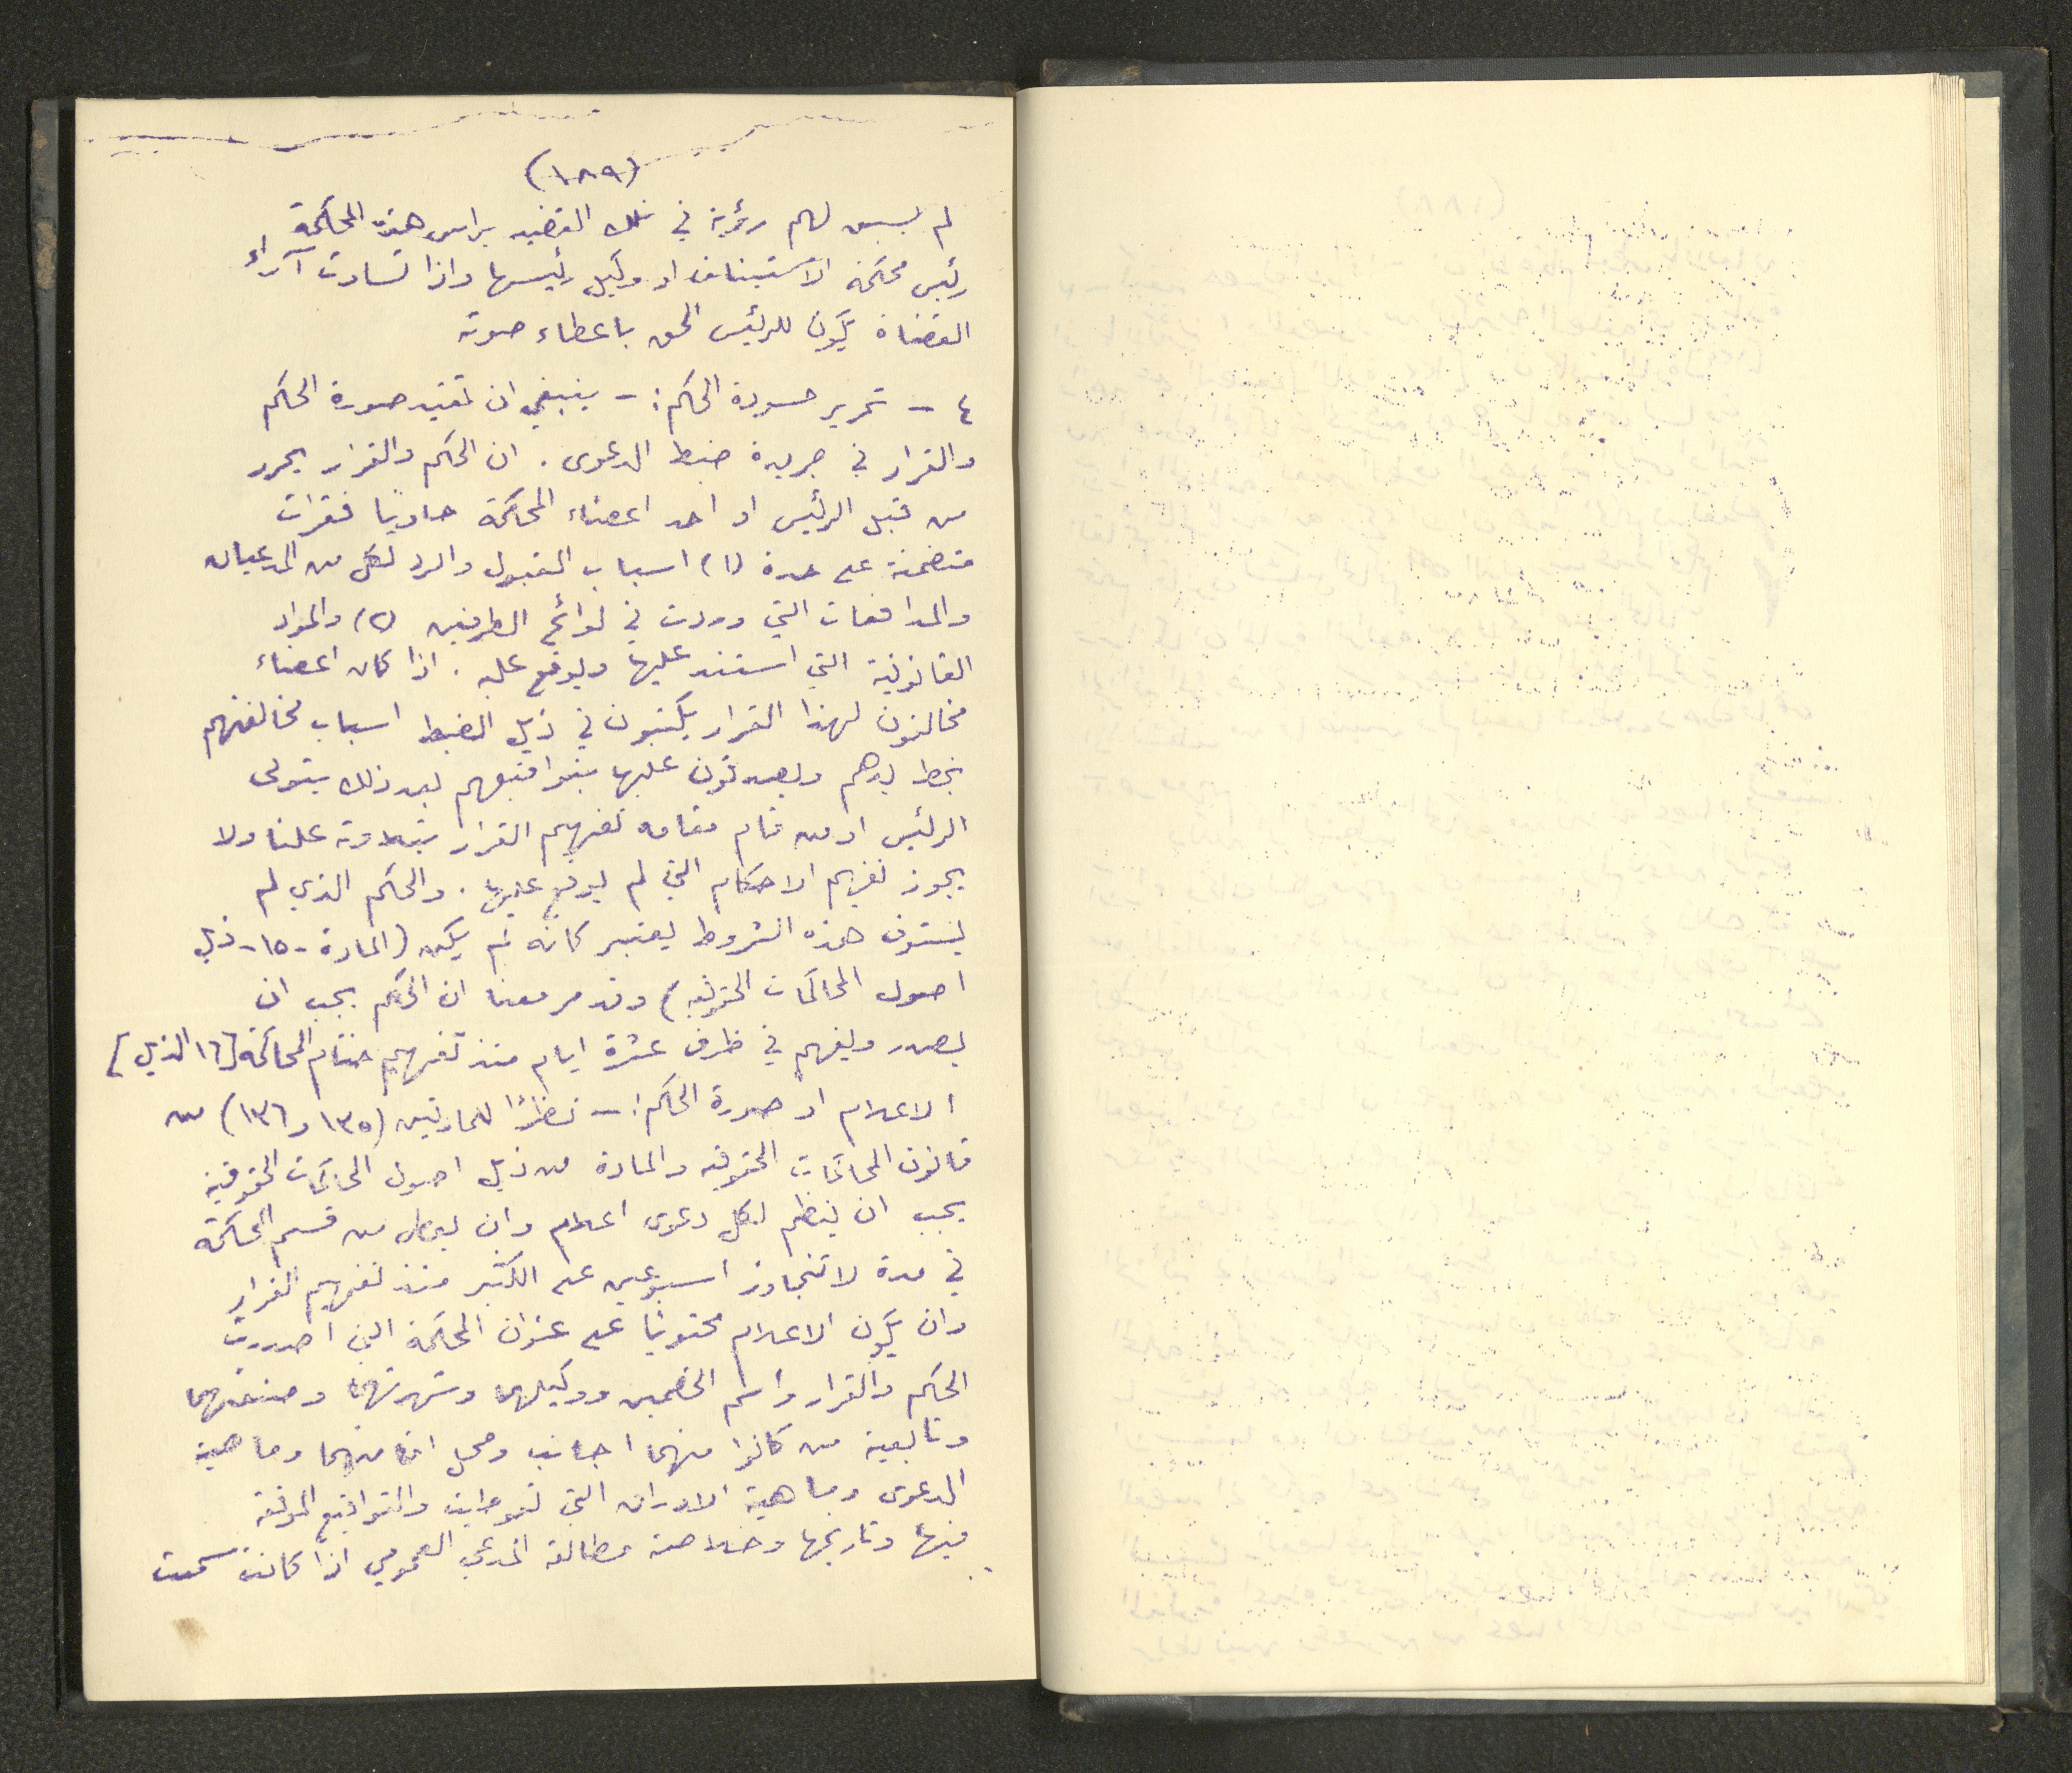 (١٨٩)
لم يسبق لهم رؤية في تلك القضيه يرأس هذه المحكمة
رئيس محكمة الاستيناف او وكيل رئيسها واذا تساوت آراء
القضاة يكون للرئيس الحق باعطاء صوته
٤ - تحرير مسودة الحكم: - ينبغي ان تقيد صورة الحكم
والقرار في جريدة ضبط الدعوى. ان الحكم والقرار يحرر
من قبل الرئيس او احد اعضاء المحكمة حاويًا فقرات
متضمنة على حدة (١) اسباب القبول والرد لكل من المدعيات
والمدافعات التي وردت في لوائح الطرفين (٢) والمواد
القانونية التي استند عليها ويوقع عليه. اذا كان اعضاء
مخالفون لهذا القرار يكتبون في ذيل الضبط اسباب مخالفتهم
بخط يدهم ويصدقون عليها بتواقيعهم بعد ذلك يتولى
الرئيس او من قام مقامه تفهيم القرار بتلاوته علنا ولا
يجوز تفهيم الاحكام التي لم يوقع عليها. والحكم الذي لم
يستوف هذه الشروط يعتبر كانه لم يكن (المادة -١٥- ذيل
اصول المحاكمات الحقوقيه) وقد مر معنا ان الحكم يجب ان
يصدر ويفهم في ظرف عشرة ايام منذ تفهيم ختام المحاكمة [١٦ الذيل]
الاعلام او صورة الحكم: - نظرًا للمادتين (١٣٥ و١٣٦) من
قانون المحاكمات الحقوقيه والمادة من ذيل اصول المحاكمات الحقوقية
يجب ان ينظم لكل دعوى اعلام وان يعطى من قسم المحكمة
في مدة لا تتجاوز اسبوعين على الاكثر منذ تفهيم القرار
وان يكون الاعلام محتويًا على عنوان المحكمة التي اصدرت
الحكم والقرار واسم الخصمين ووكيلهما وشهرتهما وصنعتهما
وتابعية من كانوا منهما اجانب ومحل اقامتهما وماهية
الدعوى وماهية الاوراق التي والتواقيع الموقعة
فيها وتاريخها وخلاصة مطالعة المدعي العمومي اذا كانت سمعت